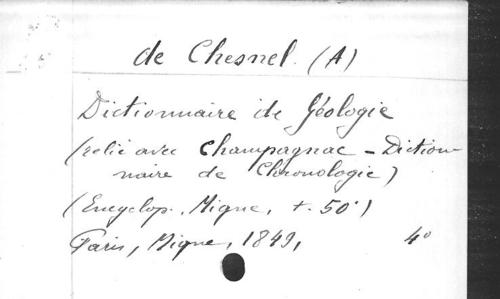 de Chesnel. (A)
Dictionnaire de Géologie
(relié avec Champagnac - Diction-
naire de Chronologie)
(Encyclop. Migne, t. 50°)
Paris, Migne, 1849, 4°